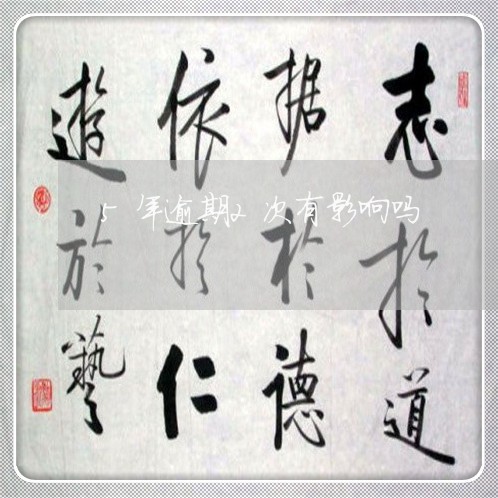 志扵道
据於德
依扵仁
遊於藝
5年逾期2次有影响吗